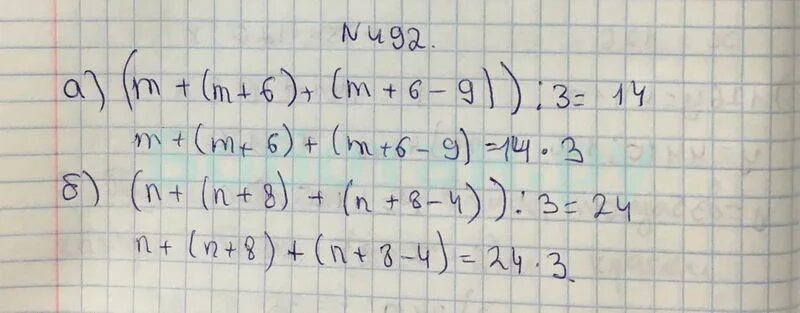 N 492.
а) (m + (m + 6) + (m + 6 - 9)) : 3 = 14
m + (m + 6) + (m + 6 - 9) = 14 · 3
б) (n + (n + 8) + (n + 8 - 4)) : 3 = 24
n + (n + 8) + (n + 8 - 4) = 24 · 3